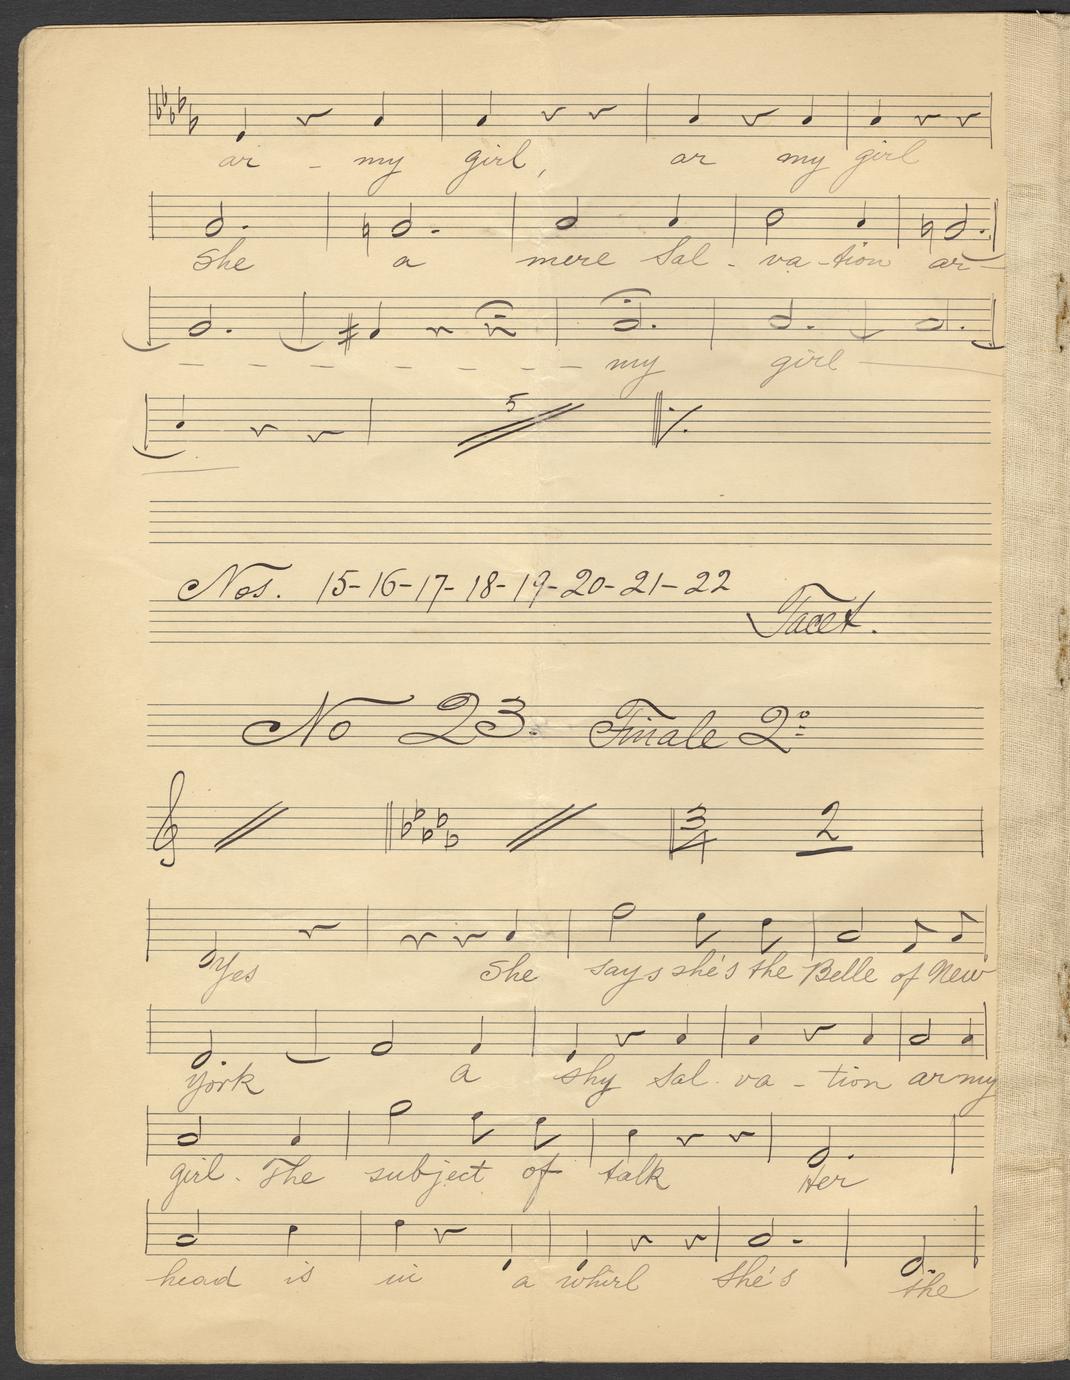 ar - my girl, ar my girl
She a mere Sal - va - tion ar -
- - - - - - - - my girl
5
Nos. 15-16-17-18-19-20-21-22
Tacet.
No 23. Finale 2º
3/4 2
Yes She says she's the Belle of New
York a shy Sal. va - tion army
girl. The subject of talk Her
head is in a whirl She's the